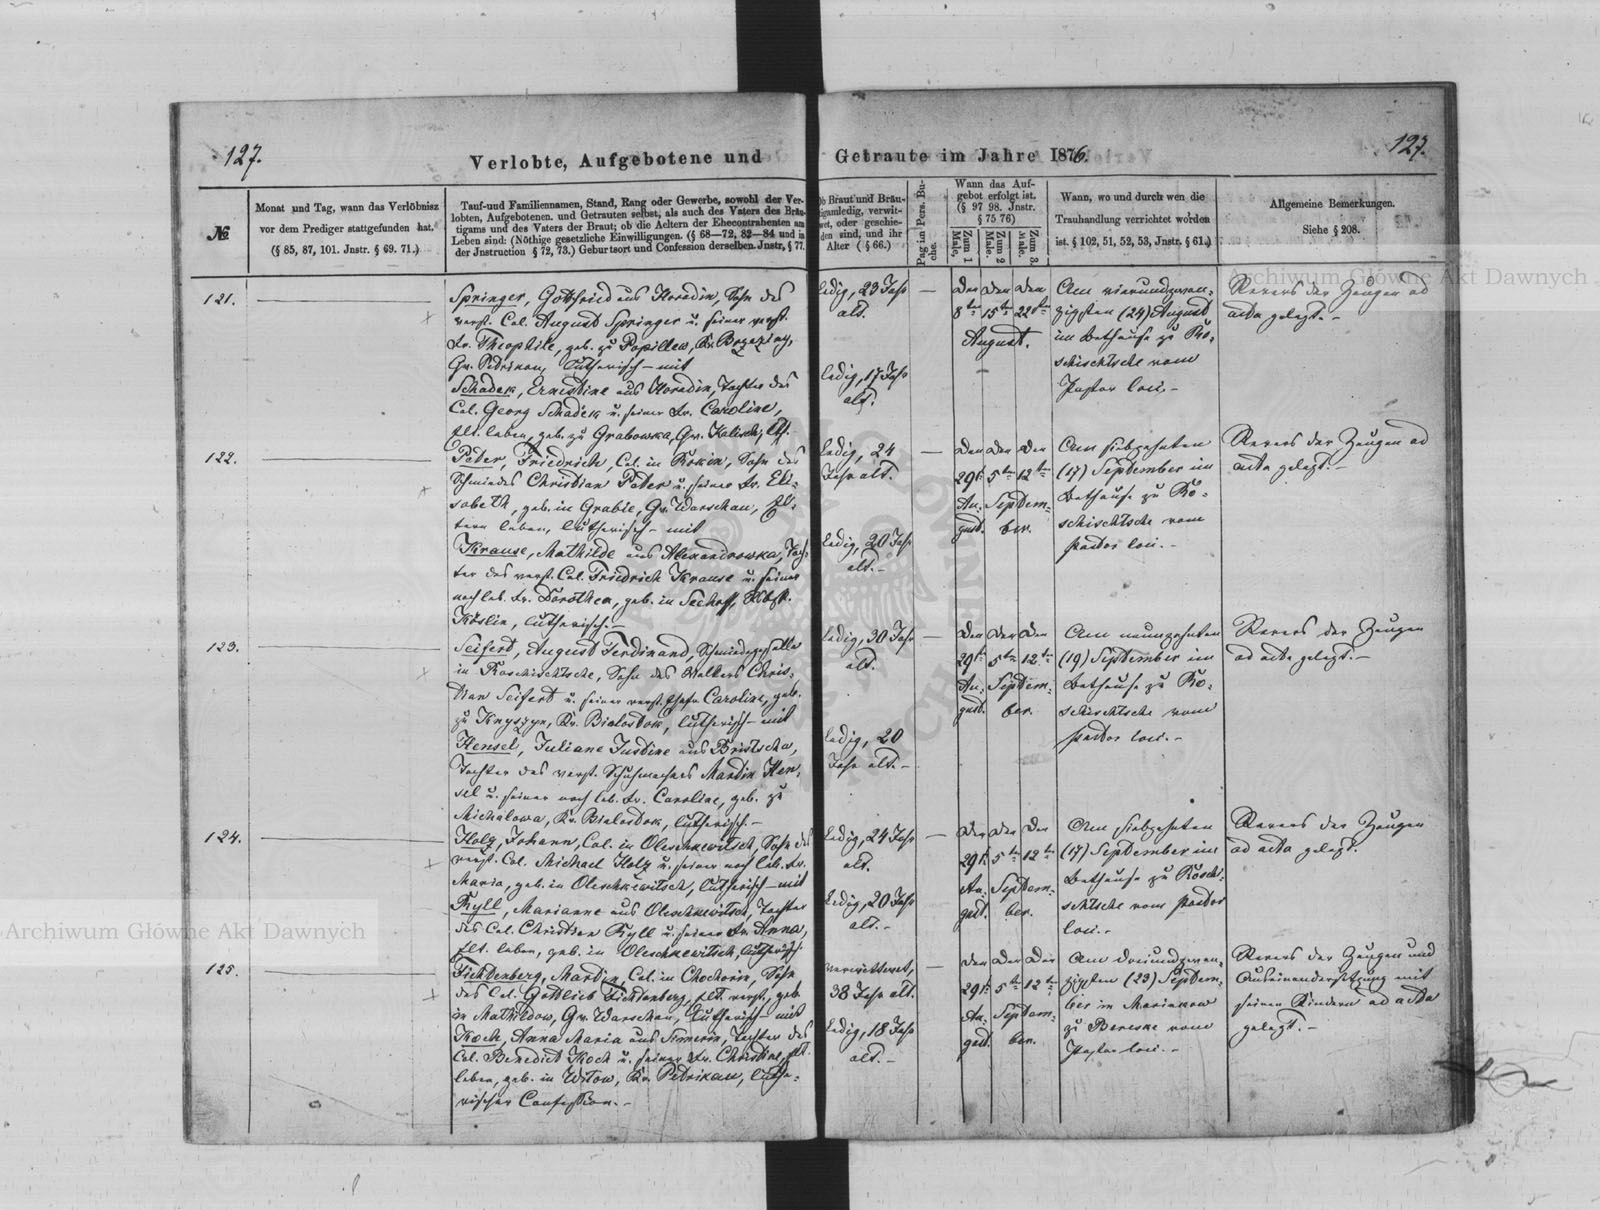 127.
127.
Verlobte, Aufgebotene und Getraute im Jahre 1876.
№
Monat und Tag, wann das Verlöbnisz
vor dem Prediger stattgefunden hat.
(§ 85, 87, 101. Jnstr. § 69. 71.)
Tauf-und Familiennamen, Stand, Rang oder Gewerbe, sowohl der Ver-
lobten, Aufgebotenen. und Getrauten selbst, als auch des Vaters des Bräu-
tigams und des Vaters der Braut; ob die Aeltern der Ehecontrahenten am
Leben sind: (Nöthige gesetzliche Einwilligungen. (§ 68—72, 82—84 und in
der Jnstruction § 72, 73.) Geburtsort und Confession derselben. Jnstr, § 77.
Ob Braut und Bräu-
tigam ledig, verwit-
wet, oder geschie-
den sind, und ihr
Alter (§ 66.)
Pag im Pers. Bu-
che.
Wann das Auf-
gebot erfolgt ist.
(§ 97 98. Jnstr.
§ 75 76)
Zum 1 Male,
Zum 2 Male.
Zum 3 Male.
Wann, wo und durch wen die
Trauhandlung verrichtet worden
ist. § 102, 51, 52, 53, Jnstr. § 61.)
Allgemeine Bemerkungen.
Siehe § 208.
121.
Springer, Gottfried aus Horodin, Sohn des
verst. Col. August Springer u. seiner verst.
Fr. Theophile, geb. zu Popillew, Kr. Brzeziny,
Gv. Petrikau, lutherisch – mit
Schadek, Ernestine aus Horodin, Tochter des
Col. Georg Schadek u. seiner Fr. Caroline,
Elt. leben, geb. zu Grabowka, Gv. Kalisch, lth.
ledig, 23 Jahr
alt.
ledig, 17 Jahr
alt.
Den Den Den
8ten 15ten 22sten
August.
Am vierundzwan-
zigsten (24) August
im Bethause zu Ro-
schischtsche vom
Pastor loci.–
Revers der Zeugen ad
acta gelegt.–
122.
Peter, Friedrich, Col. in Rokin, Sohn des
Schmiedes Christian Peter u. seiner Fr. Eli-
sabeth, geb. in Grabie, Gv. Warschau, El-
tern leben, lutherisch – mit
Krause, Mathilde aus Alexandrowka, Toch-
ter des verst. Col. Friedrich Krause u. seiner
noch leb. Fr. Dorothea, geb. in
Köslin, lutherisch.–
ledig, 24
Jahr alt.
ledig, 20 Jahr
alt.–
Den Den Den
29st. 5ten 12ten
Au- Septem-
gust. ber.
Am siebzehnten
(17) September im
Bethause zu Ro-
schischtsche vom
Pastor loci.–
Revers der Zeugen ad
acta gelegt.–
123.
Seifert, August Ferdinand, Schmiedegeselle
in Roschischtsche, Sohn des Walkers Chris-
tian Seifert u. seiner verst. Ehefr. Caroline, geb.
zu Knyszyn, Kr. Bialostok, lutherisch – mit
Hensel, Juliane Justine aus Bristscha,
Tochter des verst. Schuhmachers Martin Hen-
sel u. seiner noch leb. Fr. Caroline, geb. zu
Michalowa, Kr. Bialostok, lutherisch.–
ledig, 30 Jahr
alt.
ledig, 20
Jahr alt.–
Den Den Den
29st. 5ten 12ten
Au- Septem-
gust. ber.
Am neunzehnten
(19) September im
Bethause zu Ro-
schischtsche vom
Pastor loci.–
Revers der Zeugen
ad acta gelegt.–
124.
Holz, Johann, Col. in Oleschkewitsch, Sohn des
verst. Col. Michael Holz u. seiner noch leb. Fr.
Maria, geb. in Oleschkewitsch, lutherisch – mit
Ryll, Marianne aus Oleschkewitsch, Tochter
des Col. Christian Ryll u. seiner Fr. Anna,
Elt. leben, geb. in Oleschkewitsch, lutherisch.
ledig, 24 Jahr
alt.
ledig, 20 Jahr
alt.–
Der Der Der
29st. 5ten 12ten
Au- Septem-
gust. ber.
Am siebzehnten
(17) September im
Bethause zu Rosch-
schtsche vom Pastor
loci.–
Revers der Zeugen
ad acta gelegt.
125.
Fichtenberg, Martin, Col. in Chochorin, Sohn
des Col. Gottlieb Fichtenberg, Elt. verst., geb.
in Mathildow, Gv. Warschau, lutherisch – mit
Koch, Anna Maria aus Simerin, Tochter des
Col. Benedict Koch u. seiner Fr. Christine, Elt.
leben, geb. in Witow, Kr. Petrikau, luthe-
rischer Confession.–
verwittwet,
38 Jahr alt.
ledig, 18 Jahr
alt.–
Den Den Den
29st. 5ten 12ten
Au- Septem-
gust. ber.
Am dreiundzwan-
zigsten (23) Septem-
ber in Marianow
zu Bereske vom
Pastor loci.–
Revers der Zeugen und
Auseinandersetzung mit
seinen Kindern ad acta
gelegt.–
Archiwum Główne Akt Dawnych
Archiwum Główne Akt Dawnych